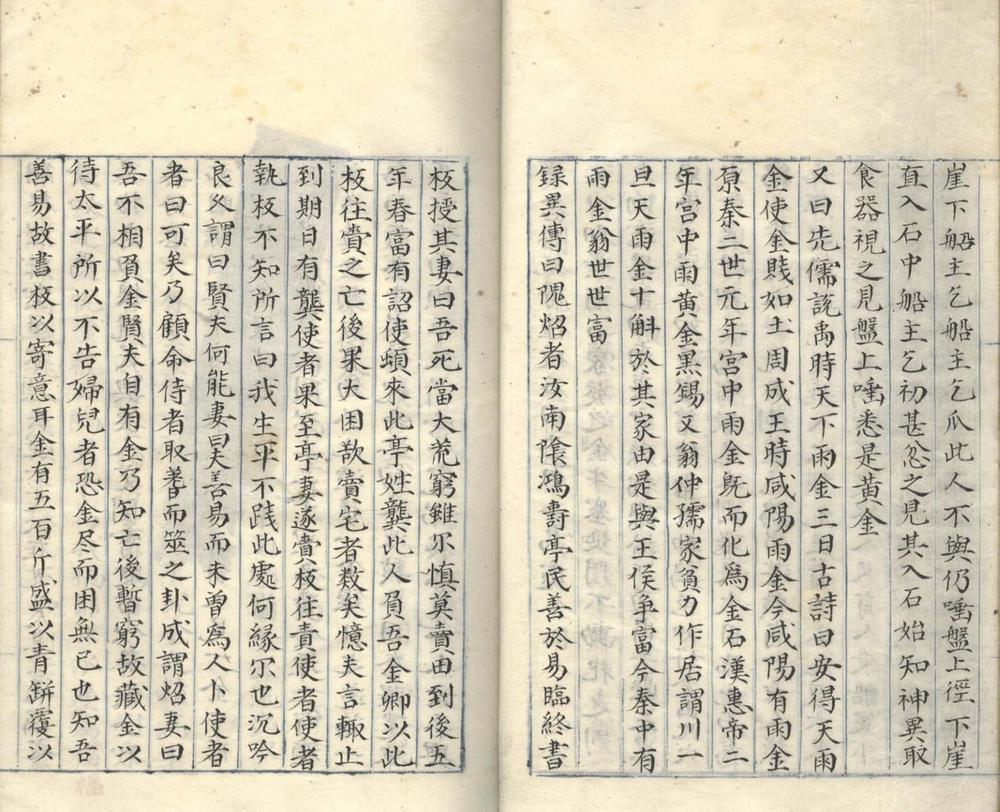 崖下船主乞船主乞瓜此人不與仍唾盤上徑下崖
直入石中船主乞初甚忿之見其入石始知神異取
食器視之見盤上唾悉是黄金
又曰先儒説禹時天下雨金三日古詩曰安得天雨
金使金賤如土周成王時咸陽雨金今咸陽有雨金
原秦二世元年宫中雨金既而化爲金石漢惠帝二
年宫中雨黄金黒錫又翁仲孺家貧力作居謂川一
旦天雨金十斛於其家由是與王侯争富今秦中有
雨金翁世世富
録異傳曰隗炤者汝南隂鴻壽亭民善於易臨終書
板授其妻曰吾死當大荒窮雖尓慎莫賣田到後五
年春富有詔使頓來此亭姓龔此人負吾金卿以此
板往賣之亡後果大困欲賣宅者数矣憶夫言輙止
到期日有龔使者果至亭妻遂賫板往責使者使者
執板不知所言曰我生平不践此處何縁尓也沉吟
良乆謂曰賢夫何能妻曰夫善易而未曾爲人卜使者
者曰可矣乃顧命侍者取蓍而筮之卦成謂炤妻曰
吾不相負金賢夫自有金乃知亡後暫窮故藏金以
待太平所以不告婦兒者恐金尽而困無已也知吾
善易故書板以寄意耳金有五百斤盛以青缾覆以